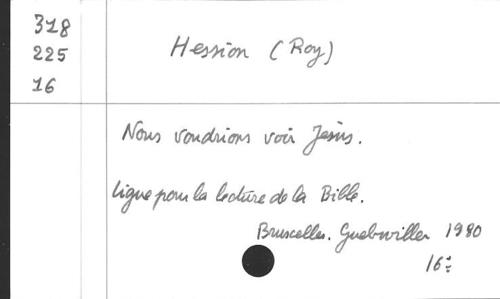 318
225
16
Hession (Roy)
Nous voudrions voir Jésus.
Ligue pour la lecture de la Bible.
Bruxelles. Guebwiller 1980
16°